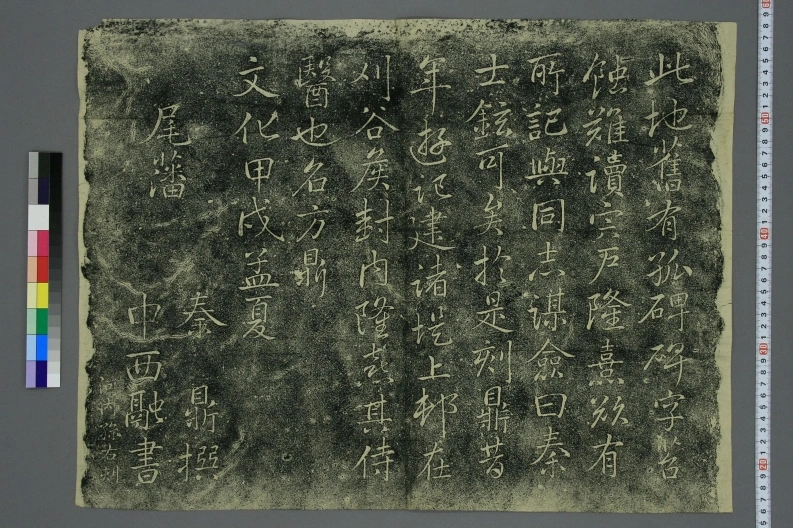 此地舊有孤碑碑字苔
蝕難讀宍戸隆熹欲有
所記與同志謀僉曰秦
士鉉可矣於是刻鼎昔
年遊記建諸堤上邨在
刈谷矦封内隆熹其侍
醫也名方鼎
文化甲戌孟夏
尾藩
秦鼎撰
中西融書